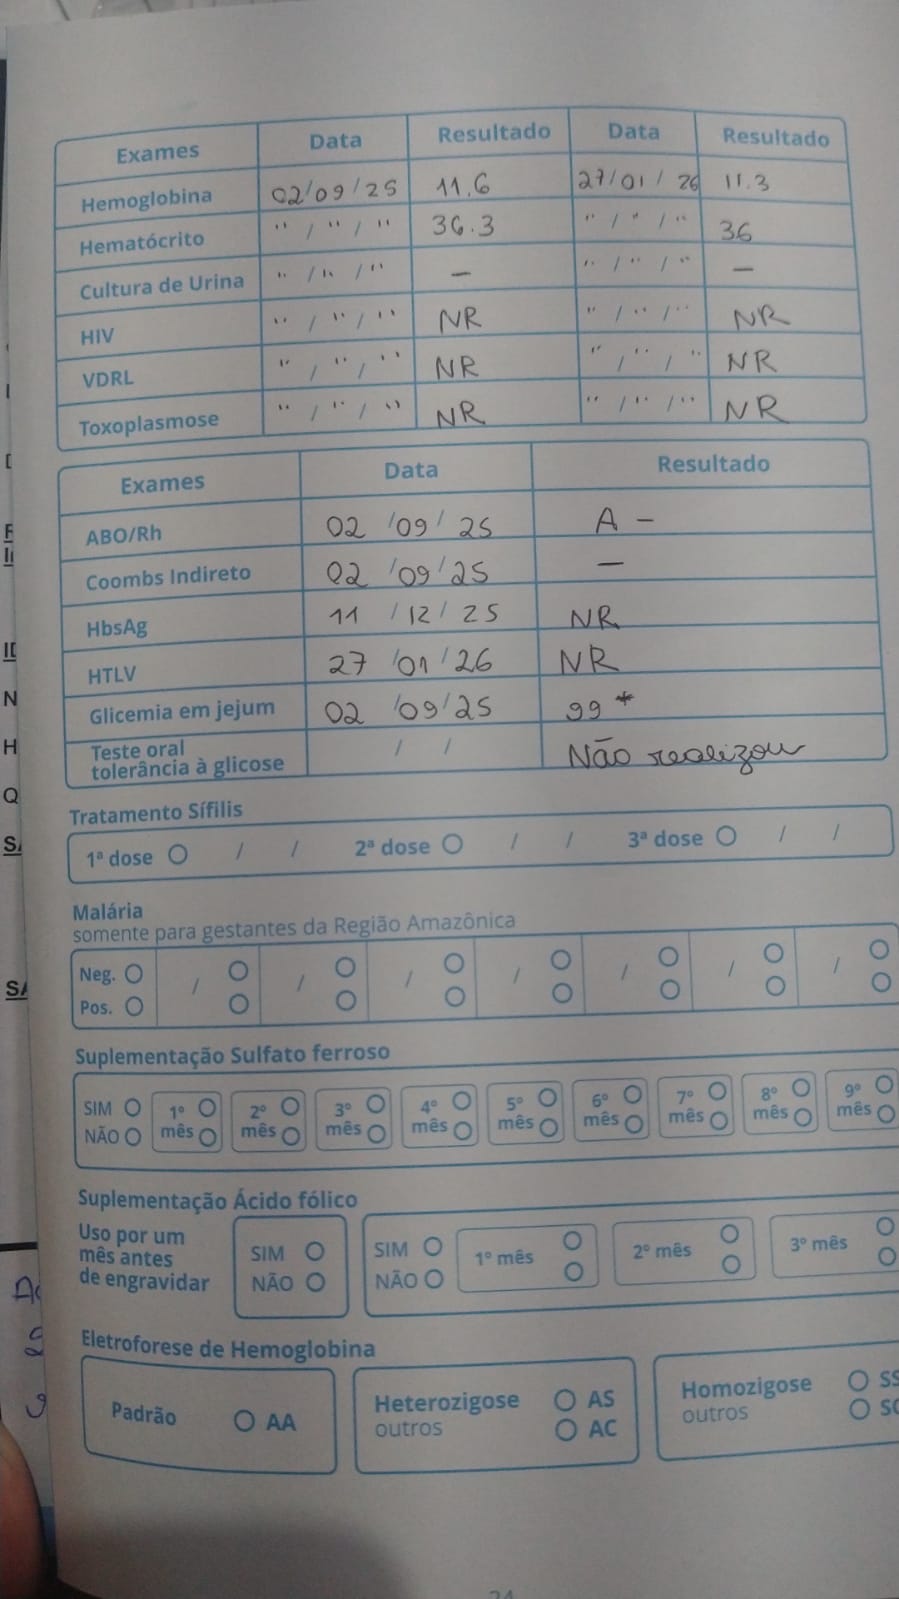 Exames Data Resultado Data Resultado
Hemoglobina 02/09/25 11.6 27/01/26 11.3
Hematócrito " / " / " 36.3 " / " / " 36
Cultura de Urina " / " / " — " / " / " —
HIV " / " / " NR " / " / " NR
VDRL " / " / " NR " / " / " NR
Toxoplasmose " / " / " NR " / " / " NR
Exames Data Resultado
ABO/Rh 02/09/25 A -
Coombs Indireto 02/09/25 —
HbsAg 11/12/25 NR
HTLV 27/01/26 NR
Glicemia em jejum 02/09/25 99*
Teste oral
tolerância à glicose / / Não realizou
Tratamento Sífilis
1ª dose / / 2ª dose / / 3ª dose / /
Malária
somente para gestantes da Região Amazônica
Neg. / / / / / / /
Pos.
Suplementação Sulfato ferroso
SIM 1º 2º 3º 4º 5º 6º 7º 8º 9º
NÃO mês mês mês mês mês mês mês mês mês
Suplementação Ácido fólico
Uso por um
mês antes
de engravidar
SIM
NÃO
SIM
NÃO
1º mês 2º mês 3º mês
Eletroforese de Hemoglobina
Padrão AA
Heterozigose AS
outros AC
Homozigose SS
outros